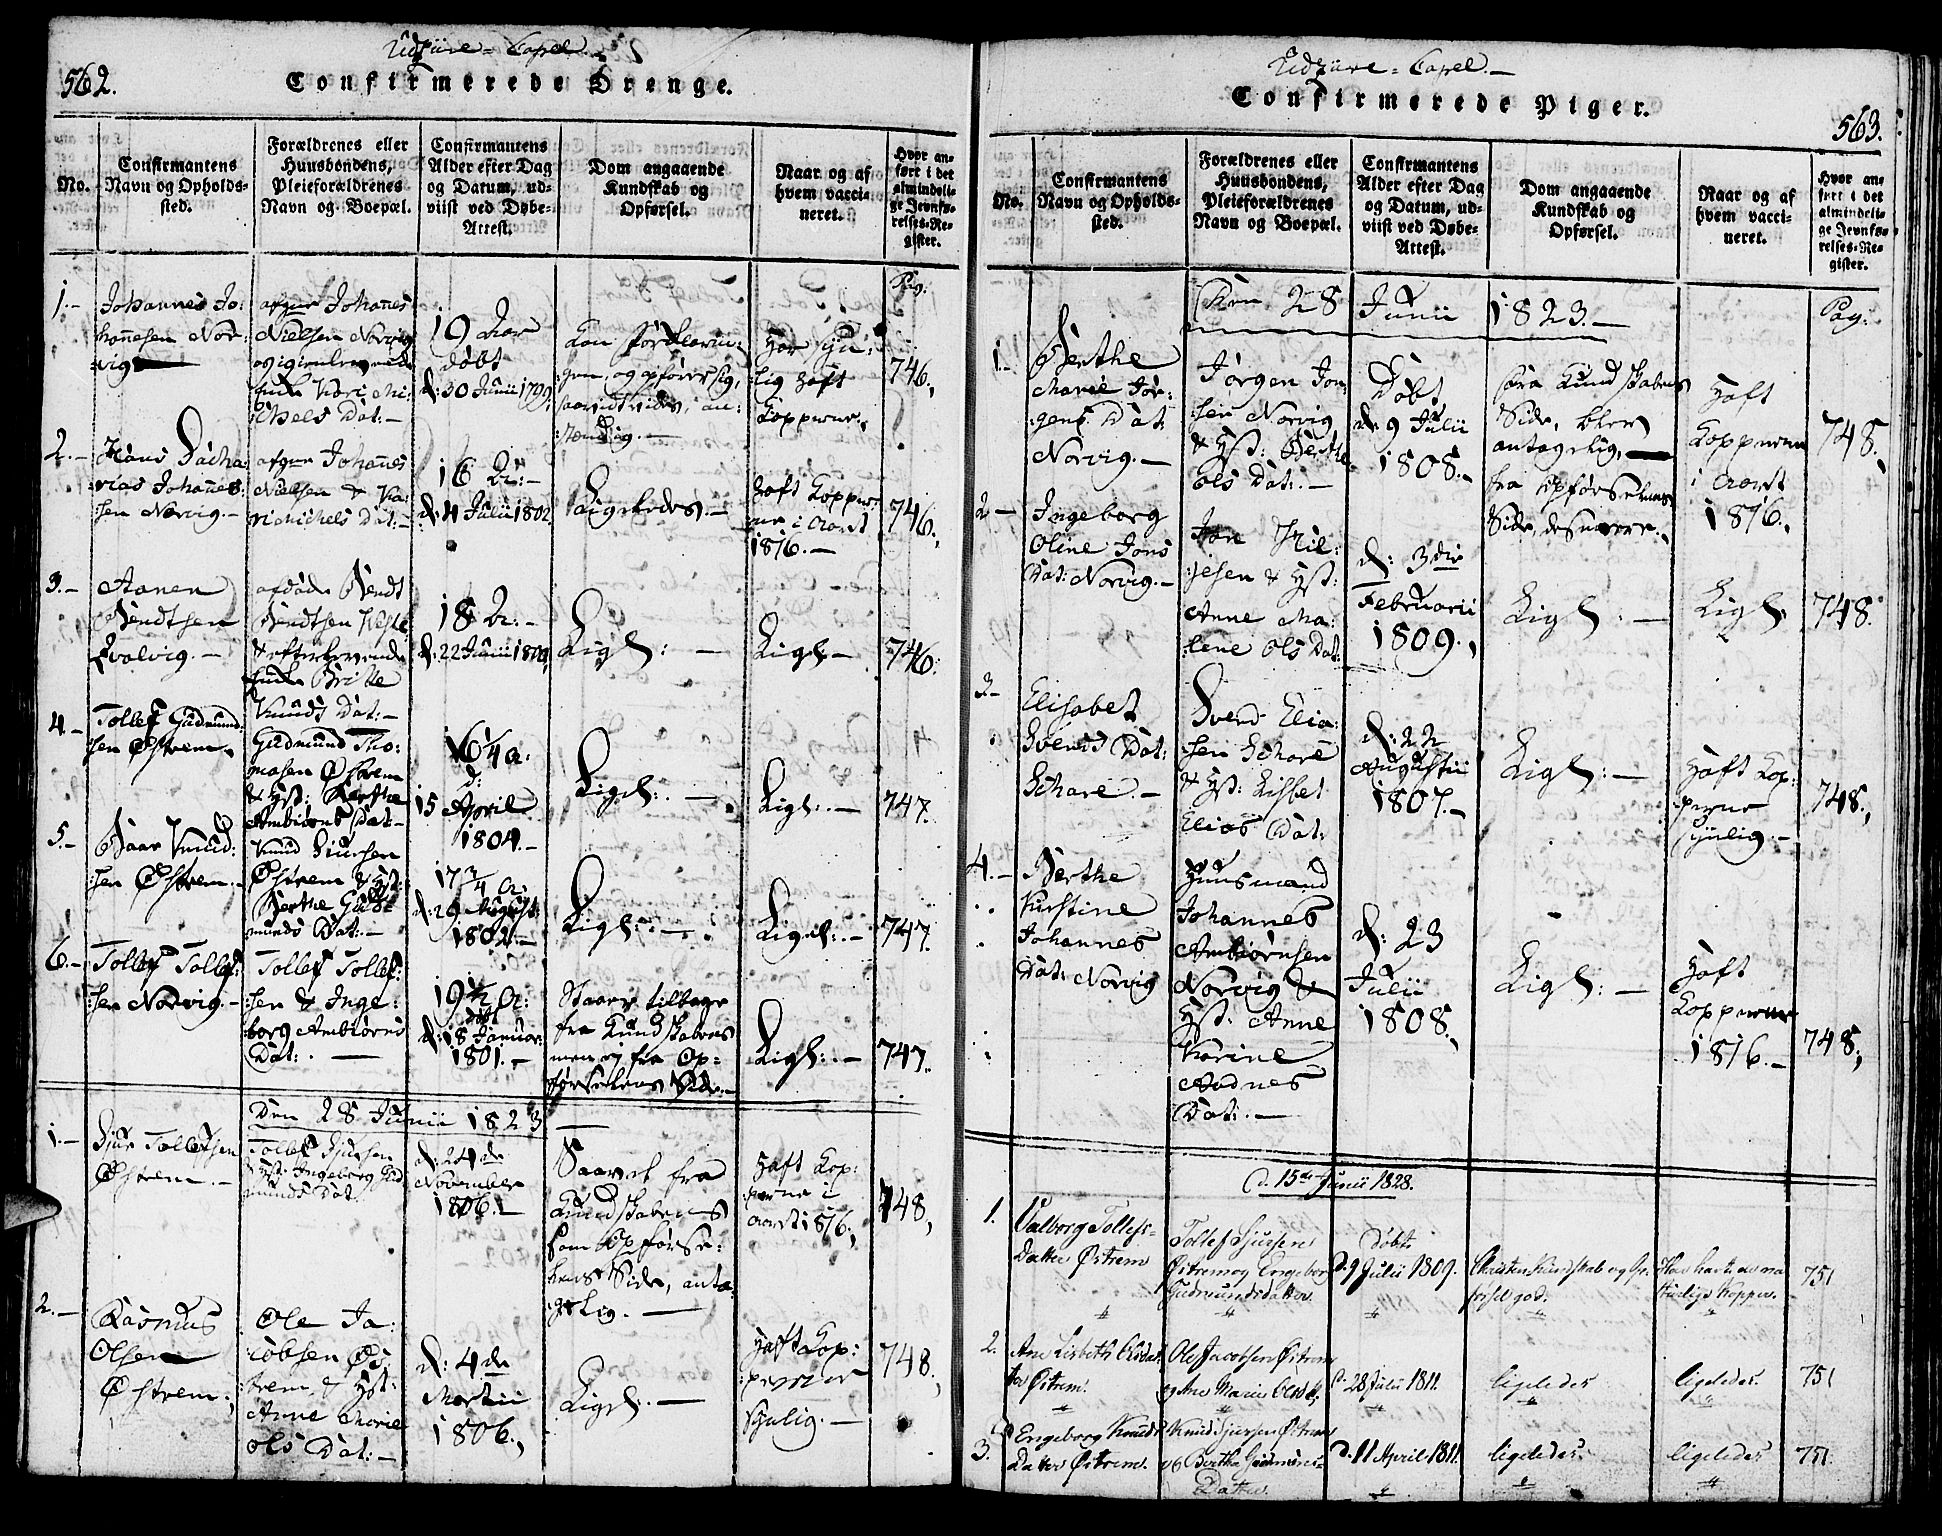 562.
Udsiire-Capel
Confirmerede Drenge.
No.
Confirmantens
Navn og Opholds-
sted.
Forældrenes eller
Huusbondens,
Pleieforældrenes
Navn og Boepæl.
Confirmantens
Alder efter Dag
og Datum, ud-
viist ved Døbe-
Attest.
Dom angaaende
Kundskab og
Opførsel.
Naar og af
hvem vacci-
neret.
Hvor an-
ført i det
almindeli-
ge Jevnfø-
relses-Re-
gister.
Pag:
1.-
Johannes Jo-
hannesen Nor-
vig
afgur Johanes
Nielsen Norvig
Kari Mi-
chels Dat.-
19 Aar
døbt
d: 30 Junii 1799.
Kan forklarin-
gen, og opfører sig,
saavidt vides, an-
stændig.-
Har syn-
lig haft
Kopperne.
746.,
2.-
Hans Zacha-
rias Johannes-
sen Norvig.-
afgur Johanes
Nielsen & Ka-
ri Michels Dat.-
16 Ar:-
d: 4 Julii 1802.
Ligeledes.-
haft Kopper-
ne i Aaret
1816.-
746.,
3.-
Aanen
Bendtsen
Qvalvig.-
afdøde Bendt
Bendtsen
& efterlevende
Enke Britte
Knuds Dat:-
18 Ar:-
d: 22 Junii
Ligel: -
Ligel-
746.
4.-
Tollef Gudmund-
sen Østrem.
Gudmund Tho-
masen Østrem
& Hst: Berthe
Ambiörns Dat-
16 1/4 a:
d:
15 April
1804.-
Ligel: -
Ligel: -
747.
5.-
Baar Knud-
sen Østrem.-
Knud Siursen
Østrem & Hst:
Berthe Gud-
munds Dat.-
17 3/4 A:
d: 29 August
1802.-
Ligel: -
Ligel: -
747.
6.-
Tollef Tollef-
sen Norvig.-
Tollef Tollef-
sen & Inge-
borg Ambiörns
Dat: -
19 1/2 A:
døbt
d: 18 Januar
1801.-
Staaer tilbage
fra Kundskabens
men ej fra Op-
førselens Side.-
Ligel: -
747.
Den 28 Junii 1823
1.-
Sjur Tollefsen
Østrem.-
Tollef Sjursen
& Hst: Ingeborg Gud-
munds Dat
d: 24de
November
1806.-
Saavel fra
Kundskabens
som Opførse-
lens Side, anta-
gelig. -
Haft Kop-
perne i
Aaret 1816.,
748,
2.-
Rasmus
Olsen
Østrem.
Ole Ja-
cobsen Øs-
trem, & Hst:
Anne Marie
Ols Dat:-
d: 4de
Martii
1806.,
Ligel: -
Haft Kop-
perne
synlig.-
748.
563.
Udsiire-Capel.-
Confirmerede Piger.
No.
Confirmantens
Navn og Opholds-
sted.
Forældrenes eller
Huusbondens,
Pleieforældrenes
Navn og Boepæl.
Confirmantens
Alder efter Dag
og Datum, ud-
viist ved Døbe-
Attest.
Dom angaaende
Kundskab og
Opførsel.
Naar og af
hvem vacci-
neret.
Hvor an-
ført i det
almindeli-
ge Jevnfø-
relses-Re-
gister.
Den 28 Junii 1823.-
Pag:
1.-
Berthe
Marie Jør-
gens Dat:
Norvig.-
Jørgen Jon-
sen Norvig
& Hst: Berthe
Ols Dat:-
Døbt
d: 9 Julii
1808.-
fra Kundskabens
Side, bler
antagelig,
fra Opførselens
Side, desuagtet
Haft
Kopperne
i Aaret
1816.,
748.
2-
Ingeborg
Oline Jons
Dat: Norvig.-
Jon
& Hst:
Anne Ma-
lene Ols Dat:
d: 3die
Februarii
1809.,
Ligel: -
Ligel:
748.
3-
Elisabet
Svends Dat:
Schare.-
Svend Elia-
sen Schare
& Hst: Lisbet
Elias Dat:
d: 22
Augustii
1807.-
Ligel: -
Haft Kop-
perne
synlig.-
748.,
4.-
Berthe
Kirstine
Johannes
Dat: Norvig
Huusmand
Johannes
Ambiörnsen
Norvig &
Hst: Anne
Karine
Aadnes
Dat:.-
d: 23
Julii
1808.
Ligel: -
Haft
Kopperne
1816.-
748.,
d. 15de Junii 1828.
1.
Valborg Tollefs-
Datter Østrem
Tollef Sjursen
Østrem og Engebor
Gudmundsdatter
Døbt
d. 9 Julii 1809.
Christen Kundskab og Op-
førsel god.
Har havt de na-
turlige Kopper.
751
2.
Ane Lisbeth Olsdat-
ter Østrem.
Ole Jacobsen Østrem
og Ane Marie Olsd.
d. 28 Julii 1811.
ligeledes
ligeledes
751
3.
Engeborg Knuds
Datter Østrem.
Knud Sjursen Østrem
og Bertha Gudmunds-
Datter
d. 11 April 1811.
ligeledes
ligeledes
751.